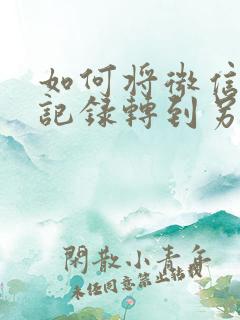 如何將微信
記錄轉到另
閑散小青年
未任同意禁止轉載